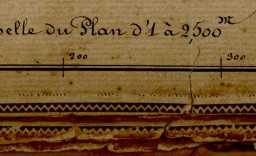 elle du Plan d'1 à 2500m
200 300